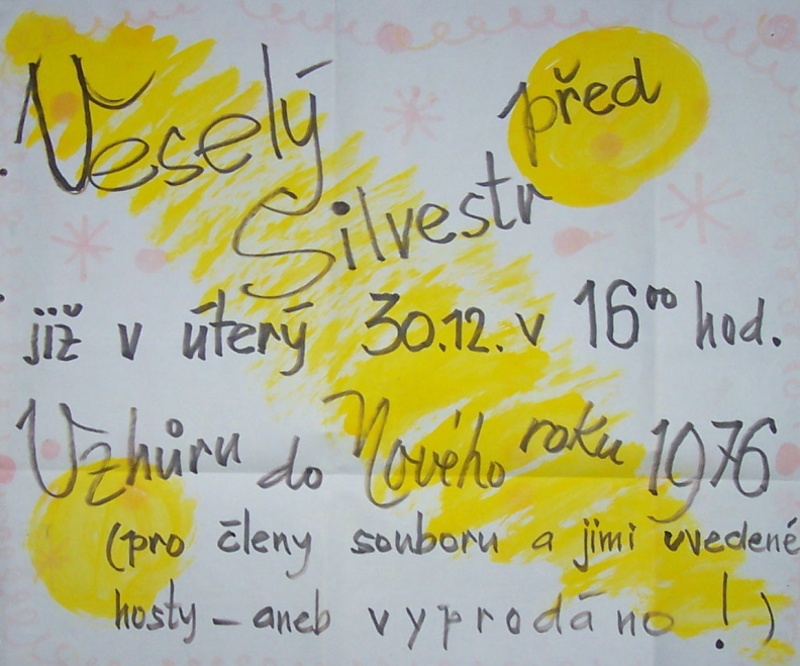 Veselý před
Silvestr
již v úterý 30.12. v 16⁰⁰ hod.
Vzhůru do Nového roku 1976
(pro členy souboru a jimi uvedené
hosty – aneb vyprodáno!)